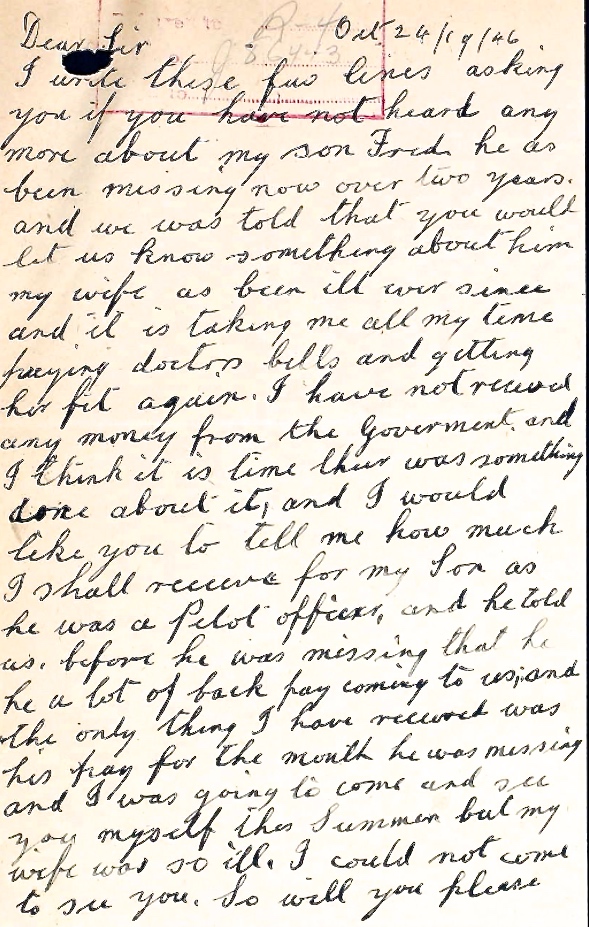 Oct 24/19/46
Dear Sir
I write these few lines asking
you if you have not heard any
more about my son Fred. he as
been missing now over two years.
and we was told that you would
let us know something about him
my wife as been ill ever since
and it is taking me all my time
paying doctors bills and getting
her fit again. I have not received
any money from the Goverment, and
I think it is time their was something
done about it, and I would
like you to tell me how much
I shall receive for my Son as
he was a Pilot officer, and he told
us. before he was missing that he
he a lot of back pay coming to us; and
the only thing I have received was
his pay for the month he was missing
and I was going to come and see
you myself this Summer but my
wife was so ill. I could not come
to see you. So will you please